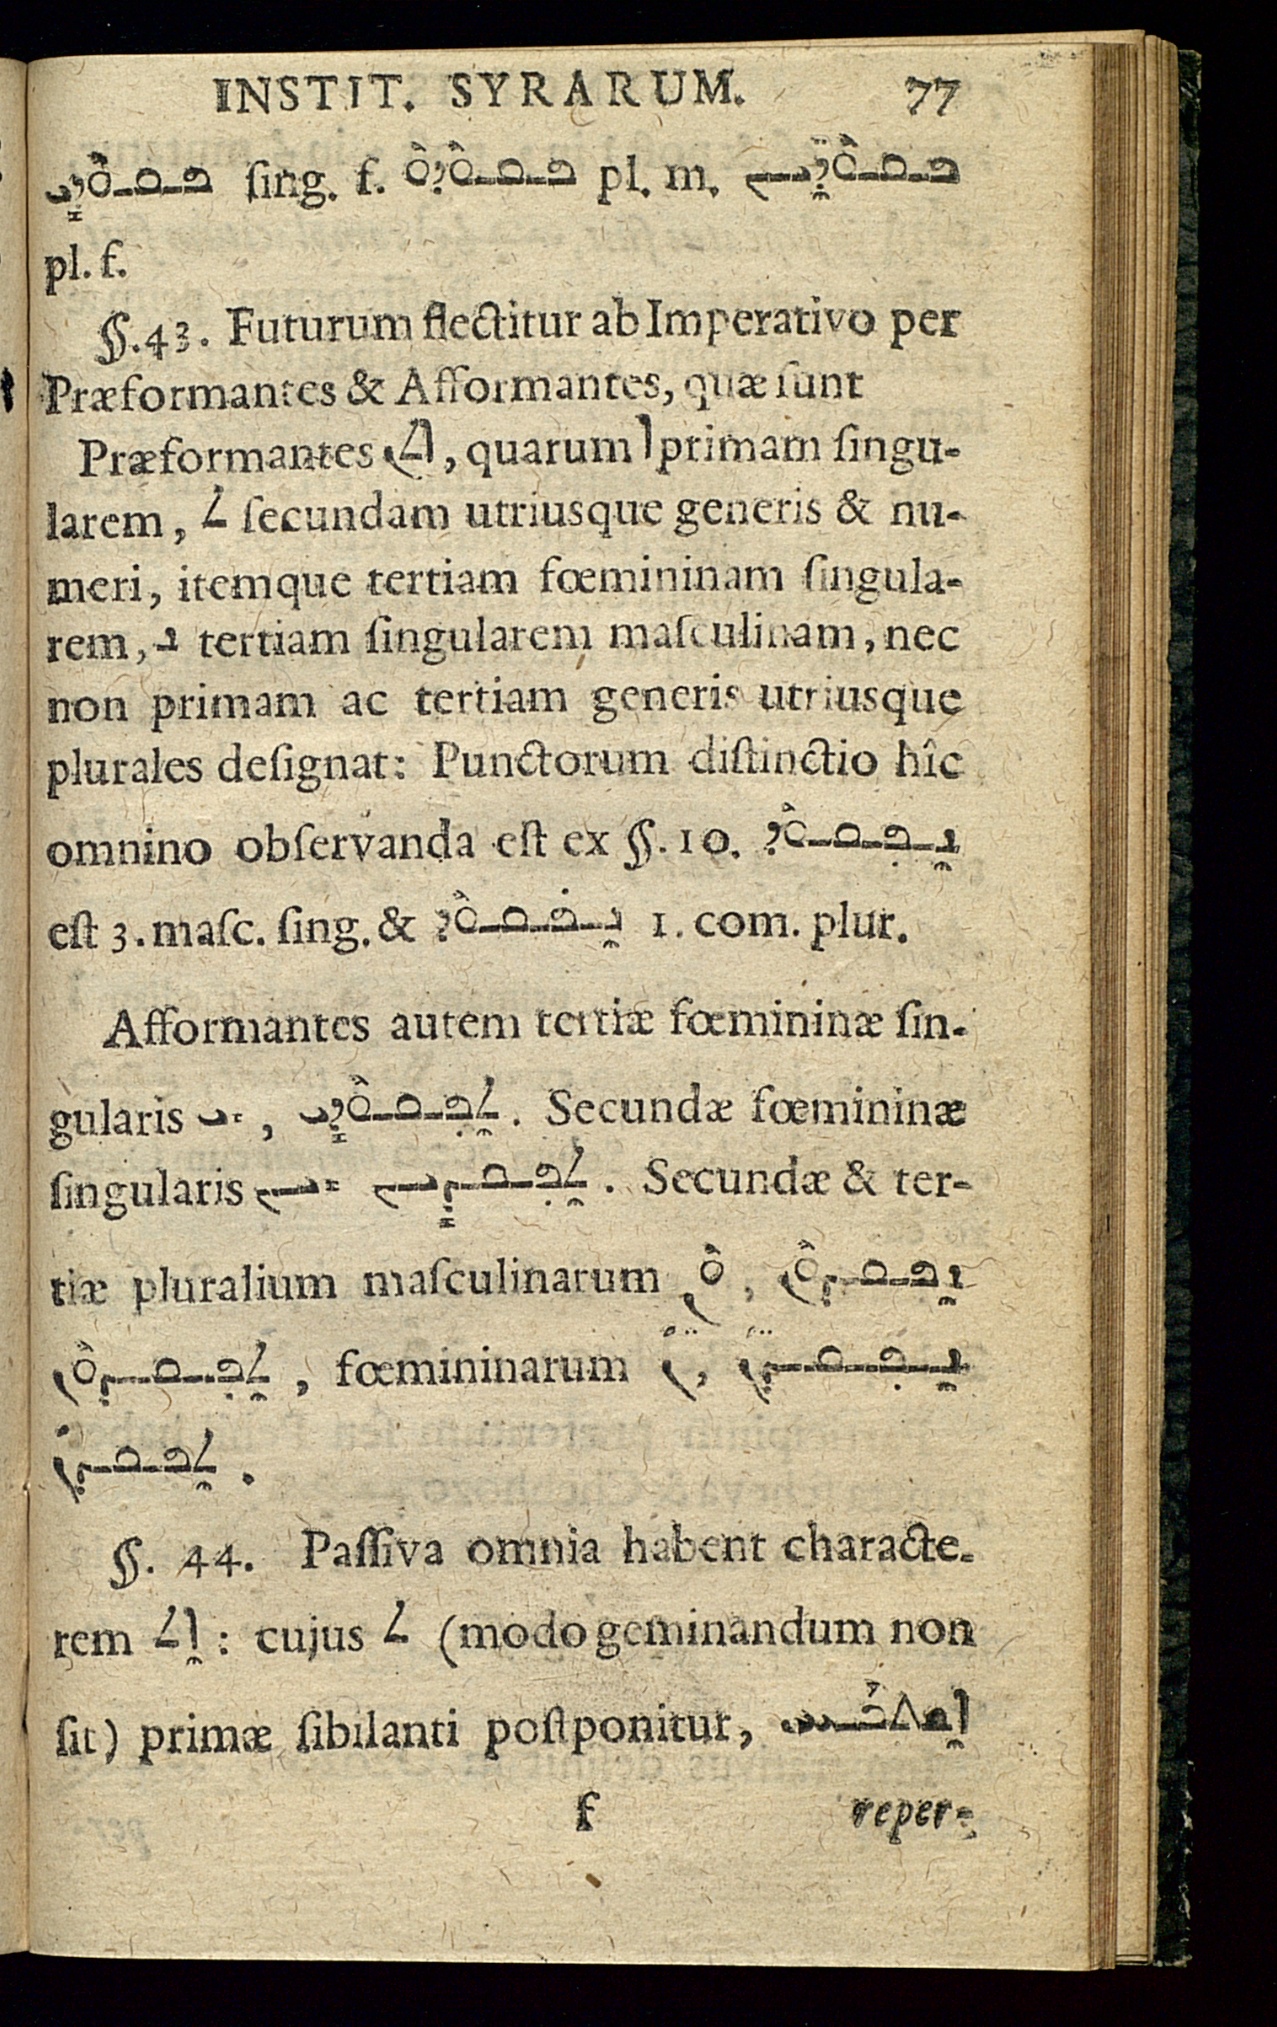 INSTIT. SYRARUM. 77
ܦܩܘܕܝ ſing. f. ܦܩܘܕܘ pl. m. ܦܩܘܕܝܢ
pl. f.
§. 43. Futurum flectitur ab Imperativo per
Præformantes & Afformantes, quæ ſunt
Præformantes ܐܬܢ, quarum ܐ primam ſingu-
larem, ܬ ſecundam utriusque generis & nu-
meri, itemque tertiam fœmininam ſingula-
rem, ܢ tertiam ſingularem maſculinam, nec
non primam ac tertiam generis utriusque
plurales deſignat: Punctorum diſtinctio hîc
omnino obſervanda eſt ex §. 10. ܢܦܩܘܕ
eſt 3. maſc. ſing. & ܢܦܩܘܕ 1. com. plur.
Afformantes autem tertiæ fœmininæ ſin-
gularis ܝ, ܬܦܩܘܕܝ. Secundæ fœmininæ
ſingularis ܝܢ ܬܦܩܕܝܢ. Secundæ & ter-
tiæ pluralium maſculinarum ܘܢ, ܢܦܩܕܘܢ
ܬܦܩܕܘܢ, fœmininarum ܢ, ܢܦܩܕܢ
ܬܦܩܕܢ.
§. 44. Paſſiva omnia habent characte-
rem ܐܬ: cujus ܬ (modo geminandum non
ſit) primæ ſibilanti poſtponitur,
f reper-